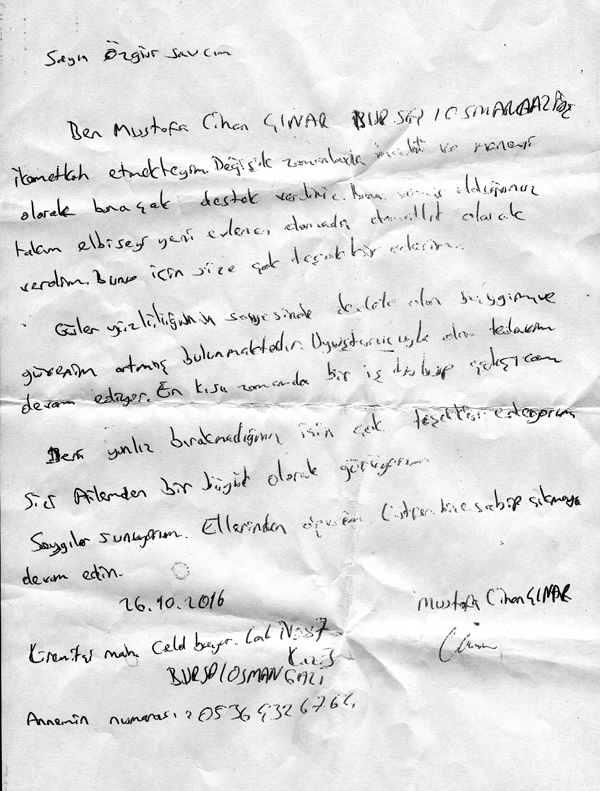 Sayın Özgür Savcım
Ben Mustafa Cihan ÇINAR BURSA / OSMANGAZİ'de
ikametkah etmekteyim. Değişik zamanlarda maddi ve manevi
olarak bana çok destek verdiniz. Bana vermiş olduğunuz
takım elbiseyi yeni evlenen damatlık olarak
verdim. Bunun için size çok teşekkür ederim.
Güler yüzlülüğünün sayesinde devlete olan saygım ve
güvenim artmış bulunmaktadır. Uyuşturucuyla olan tedavim
devam ediyor. En kısa zamanda bir iş bulup çalışıcam
Beni yanlız bırakmadığınız için çok teşekkür ediyorum
Sizi Ailemden bir büyük olarak görüyorum
Saygılar sunuyorum. Ellerinden öperim. Lütfen bize sahip çıkmaya
devam edin.
26.10.2016 Mustafa Cihan ÇINAR
mah. Celal bayar. Cad
BURSA / OSMANGAZİ
Annemin numarası: